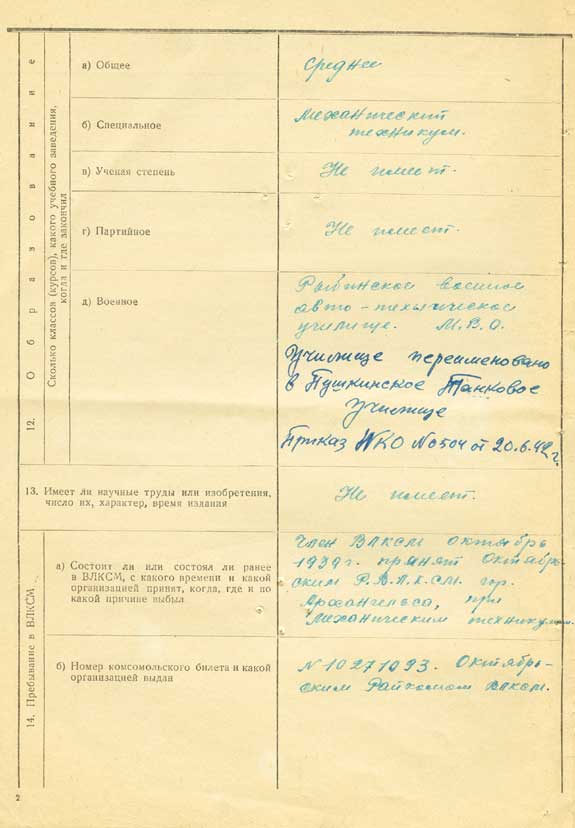 12. Образование
Сколько классов (курсов), какого учебного заведения,
когда и где закончил
а) Общее
Среднее
б) Специальное
Механический
техникум.
в) Ученая степень
Не имеет.
г) Партийное
Не имеет.
д) Военное
Рыбинское военное
авто-техническое
училище. М.В.О.
Училище переименовано
в Пушкинское Танковое
Училище
Приказ НКО №0504 от 20.6.42 г.
13. Имеет ли научные труды или изобретения,
число их, характер, время издания
Не имеет.
14. Пребывание в ВЛКСМ
а) Состоит ли или состоял ли ранее
в ВЛКСМ, с какого времени и какой
организацией принят, когда, где и по
какой причине выбыл
Член ВЛКСМ октябрь
1939г. принят Октябрь-
ским Р.В.Л.К.СМ. гор.
Архангельска, при
Механическим техникуме.
б) Номер комсомольского билета и какой
организацией выдан
№10271093. Октябрь-
ским Райкомом ВЛКСМ.
2